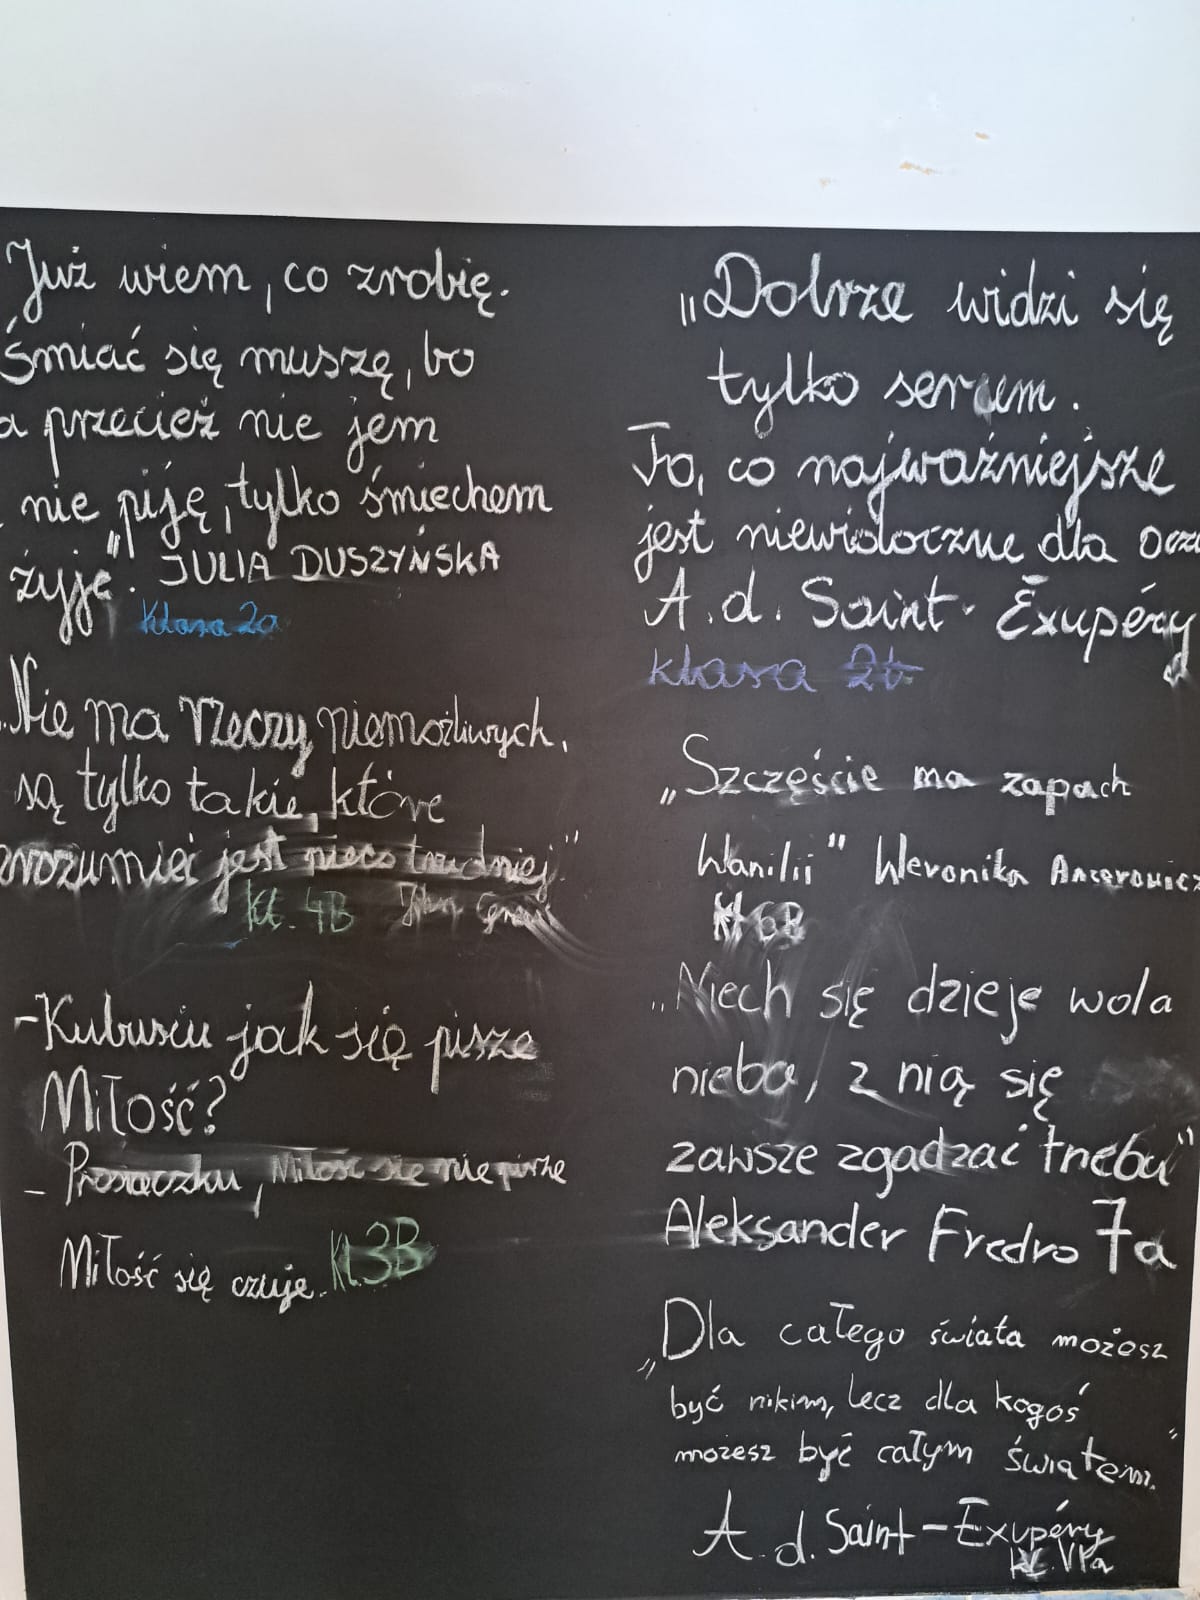 Już wiem, co zrobię.
Śmiać się muszę, bo
a przecież nie jem
nie piję, tylko śmiechem
żyję". JULIA DUSZYŃSKA
klasa 2a
„Nie ma rzeczy niemożliwych,
są tylko takie, które
zrozumieć jest nieco trudniej."
Kl. 4B
-Kubusiu jak się pisze
Miłość?
- Prosiaczku, Miłość się nie pisze
Miłość się czuje. Kl. 3B
„Dobrze widzi się
tylko sercem.
To, co najważniejsze
jest niewidoczne dla ocz
A. d. Saint-Exupéry
klasa 2b
„Szczęście ma zapach
Wanilii" Weronika Ancerowicz
Kl 6B
„Niech się dzieje wola
nieba, z nią się
zawsze zgadzać trzeba"
Aleksander Fredro 7a
„Dla całego świata możesz
być nikim, lecz dla kogoś
możesz być całym świątem."
A. d. Saint-Exupéry